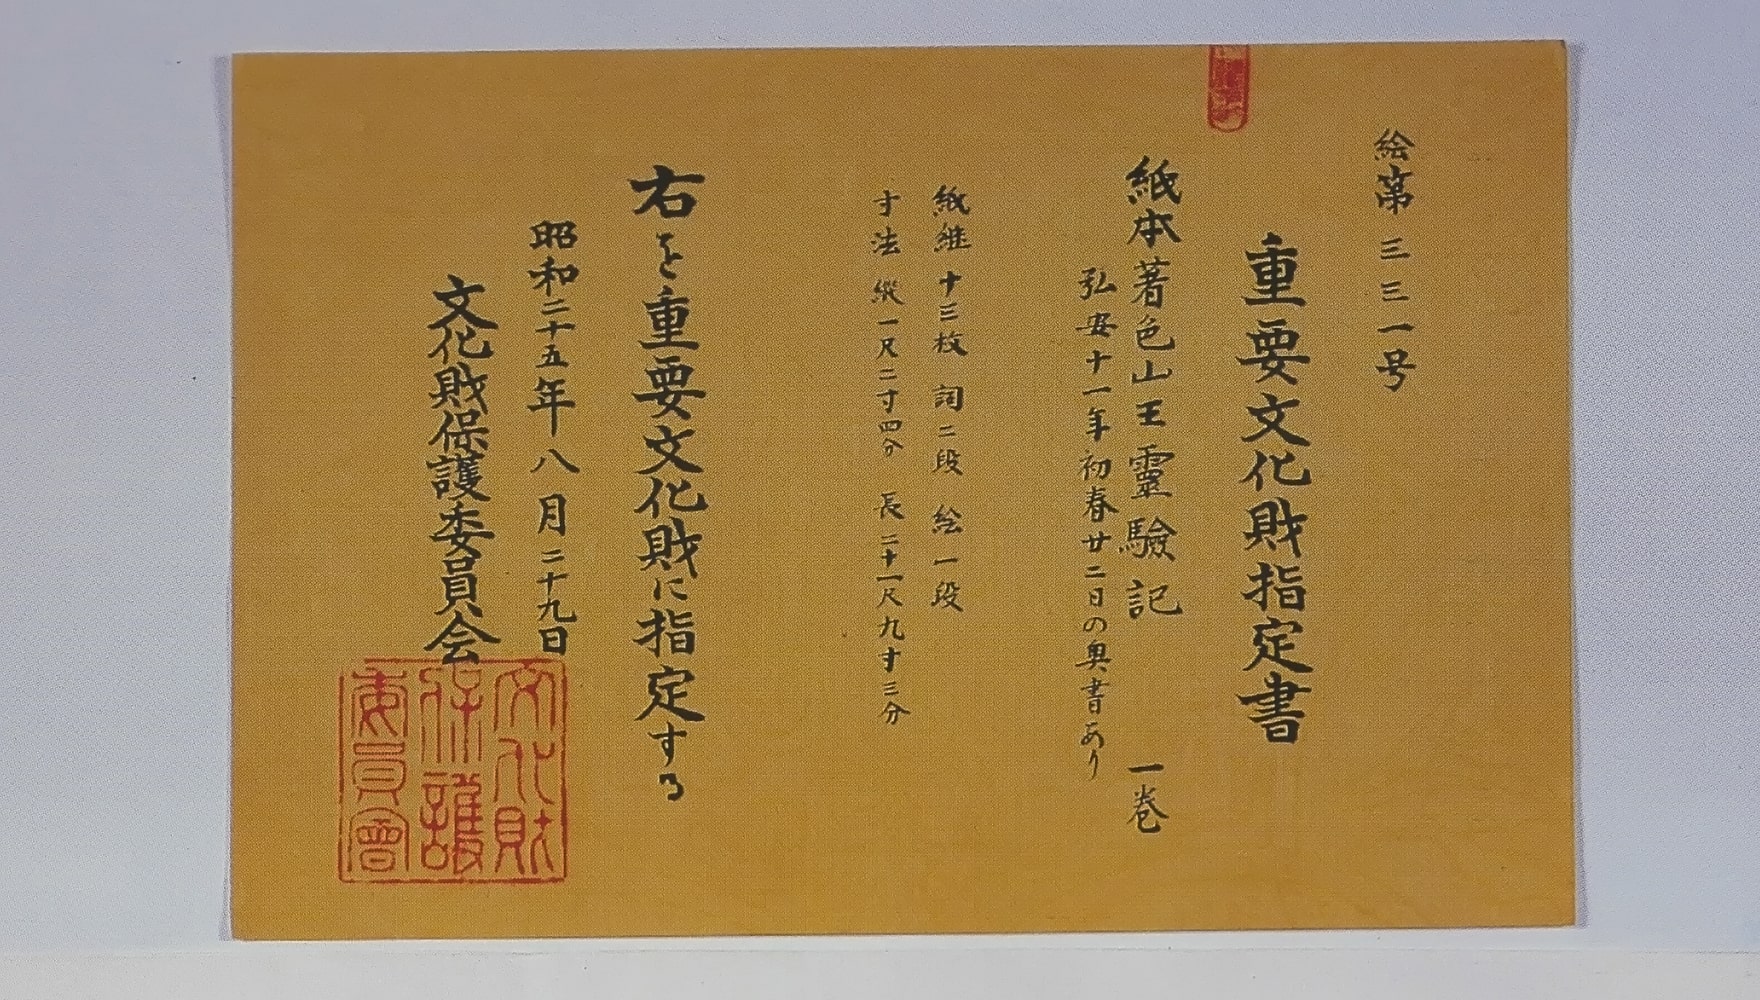 絵第三三一号
重要文化財指定書
紙本著色山王靈驗記　一巻
弘安十一年初春廿二日の奥書あり
紙継十三枚　詞二段　絵一段
寸法　縦一尺二寸四分　長二十一尺九寸三分
右を重要文化財に指定する
昭和二十五年八月二十九日
文化財保護委員会
文化財
保護
委員會